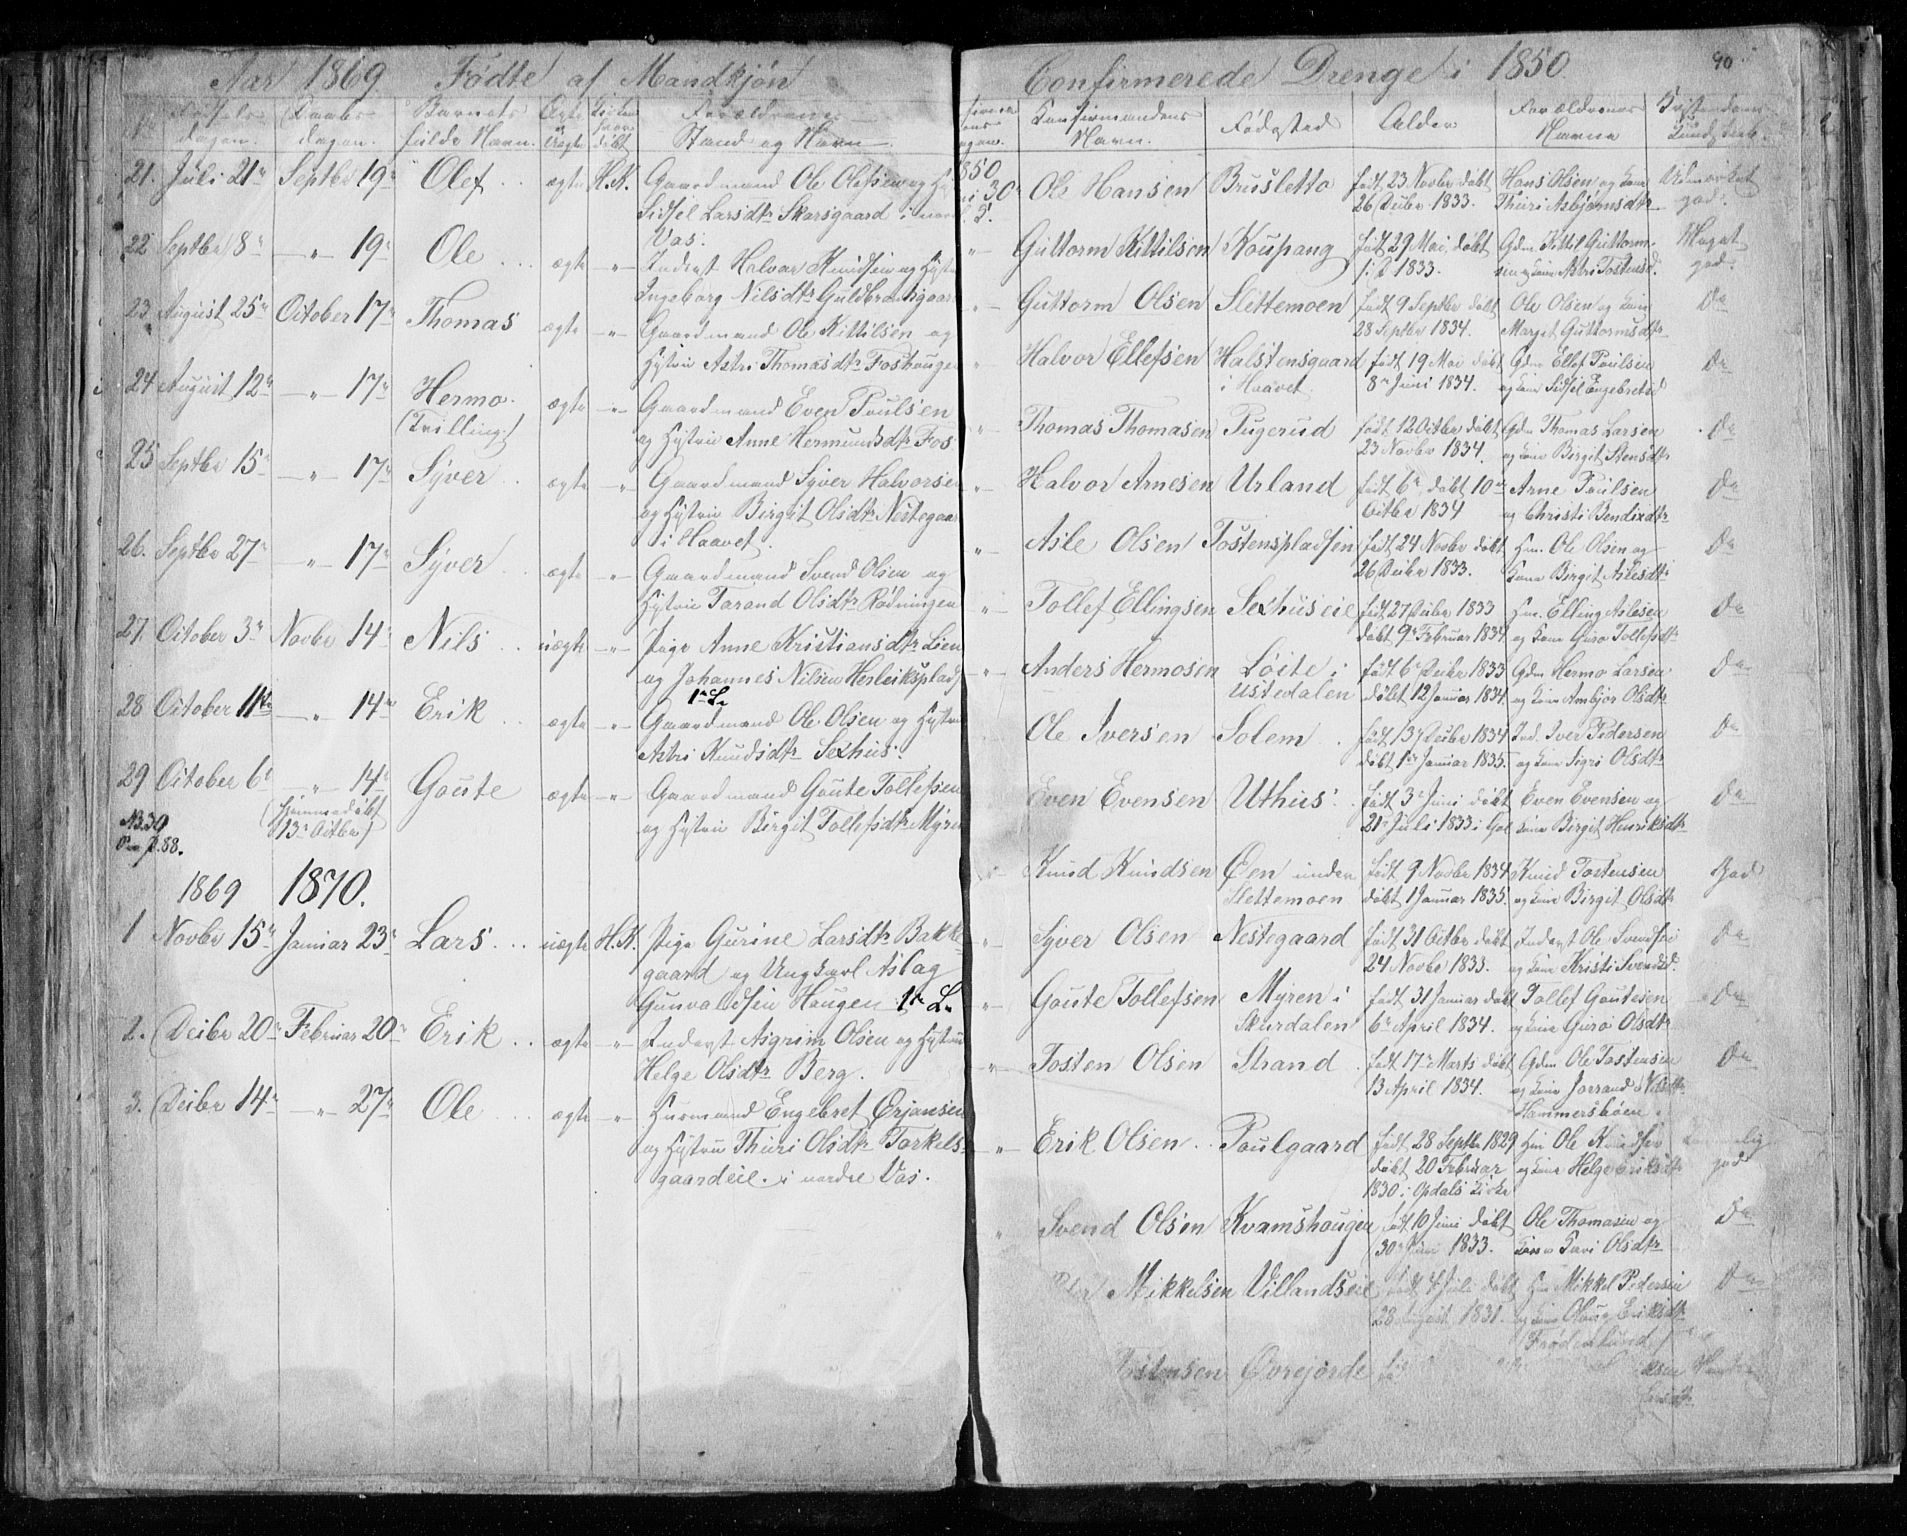 Aar 1869 Fødte af Mandkjøn
Fødsels- dagen. Daabs- dagen. Barnets fulde Navn. Ægte Uægte Forældrenes Stand og Navn
21. Juli 21de Septbr 19de Olef ægte H.K. Gaardmand Ole Olefsen og Hustru
Sidsel Larsdtr Skarsgaard i nord
Vas.
22 Septbr 8de -"- 19de Ole ægte -"- Inderst Halvor Knudsen og Hustru
Ingeborg Nilsdtr Guldbrandsgaard
23 August 25de October 17de Thomas ægte -"- Gaardmand Ole Kittilsen og
Hustru Astri Thomasdtr Foshaugen
24 August 12te -"- 17de Hermo ægte -"- Gaardmand Even Paulsen
(Trilling) og Hustru Anne Hermundsdtr Fos
25 Septbr 15de -"- 17de Syver ægte -"- Gaardmand Syver Halvorsen
og Hustru Birgit Olsdtr Nestegaard
i Haavet.
26. Septbr 27de -"- 17de Syver ægte -"- Gaardmand Svend Olsen og
Hustru Tarand Olsdtr Rødningen
27. October 3de Novbr 14de Nils uægte -"- Pige Anne Kristiansdtr Lien
og Johannes Nilsen Herleiksplads
1ste L.
28 October 11te -"- 14de Erik ægte -"- Gaardmand Ole Olsen og Hustru
Astri Knudsdtr Sexhus.
29 October 6te -"- 14de Goute ægte -"- Gaardmand Goute Tollefsen
(Hjemmedøbt 13de Octbr) og Hustru Birgit Tollefsdtr Myren
No 30
See p. 88.
1869 1870.
1 Novbr 15de Januar 23de Lars uægte H.K. Pige Gurine Larsdtr Bakke-
gaard og Ungkarl Aslag
Gunvaldsen Haugen 1ste L.
2. Decbr 20de Februar 20de Erik ægte -"- Inderst Asgrim Olsen og Hustru
Helge Olsdtr Berg.
3. Decbr 14de -"- 27de Ole ægte -"- Husmand Engebret Ørjansen
og Hustru Thuri Olsdtr Torkels-
gaardeie i nordre Vas.
Confirmerede Drenge i 1850
90
Konfirmandens Navn. Fødested Alder Forældrenes Navne Kristendoms Kundskab
1850
30 Ole Hansen Brusletto født 23 Novbr døbt Hans Olsen og Kone Udmærket
26 Decbr 1833. Thuri Asbjørnsdtr god.
" Guttorm Kittilsen Koupang født 29 Mai, døbt Gdm. Kittil Guttorm- Meget
1833. sen og Kone Astri Tostensd. god.
" Guttorm Olsen Slettemoen født 9 Septbr døbt Ole Olsen og Kone Do
28 Septbr 1834. Margit Guttormsdtr
Halvor Ellefsen Halstensgaard født 19 Mai døbt Gdm Ellef Paulsen Do
i Haavet. 8de Juni 1834. og Kone Sidsel Engebretsd
" Thomas Thomasen Tugerud født 12 Octbr døbt Gdm Thomas Larsen Do
23 Novbr 1834. og Kone Birgit Stensdtr
" Halvor Arnesen Urland født 6te døbt 10de Arne Paulsen Do
Octbr 1834 og Christi Bendixdtr
" Asle Olsen Tostenspladsen født 24 Novbr døbt Hm. Ole Olsen og Do
26 Decbr 1833. Kone Birgit Aslesdtr
" Tollef Ellingsen Sexhuseie født 27 Decbr 1833 Hm. Elling Aslesen Do
døbt 9de Februar 1834 og Kone Guro Tollefsdtr
" Anders Hermosen Løite i født 6te Decbr 1833 Gdm Hermo Larsen Do
Ustedalen døbt 12 Januar 1834. og Kone Ambjør Olsdtr
Ole Iversen Solem født 13 Decbr 1834 Ind. Iver Pedersen Do
døbt 1ste Januar 1835. og Kone Sigri Olsdtr
Even Evensen Uthus født 3de Juni døbt Even Evensen og Do
21de Juli 1833 i Gol Kone Birgit Henriksdtr
" Knud Knudsen Øen under født 9 Novbr 1834 Knud Tostensen God
Slettemoen døbt 1 Januar 1835. og Kone Birgit Olsdtr
" Syver Olsen Nestegaard født 31 Octbr døbt Inderst Ole Svendsen Do
24 Novbr 1833. og Kone Kristi Svendsd.
" Goute Tollefsen Myren i født 31 Januar døbt Tollef Goutesen Do
Skurdalen 6te April 1834. og Kone Guro Olsdtr
" Tosten Olsen Strand født 17de Marts døbt Gdm Ole Tostensen Do
13 April 1834. og Kone Jorrand Nilsdtr
Hammersbøen.
" Erik Olsen Poulgaard født 28 Septbr 1829 Hm Ole Knudsen Temmelig
døbt 20 Februar og Kone Helge Eriksdtr god
1830 i Opdals Kirke
" Svend Olsen Kvamshaugen født 10 Juni døbt Ole Thomasen og Do
30 Juni 1833. Kone Kari Olsdtr
Mikkelsen Villandseie født 4 Juli døbt Hm Mikkel Pedersen Do
28 August 1831. og Kone Olaug Eriksdtr
Frødenlund
Tostensen Øvrejorde